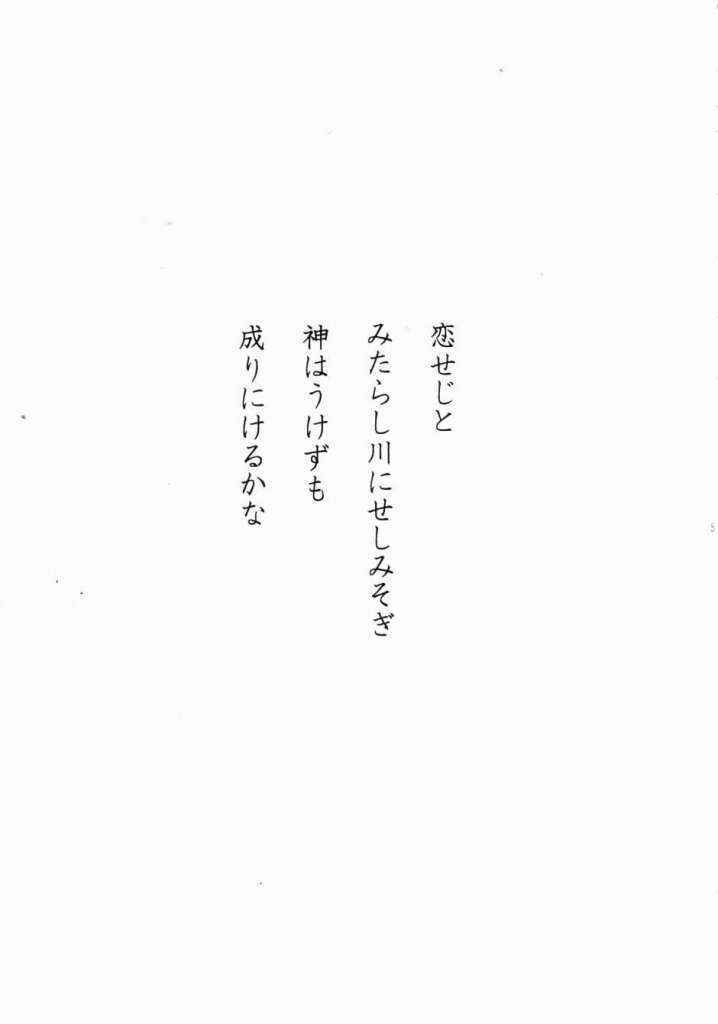 恋せじと
みたらし川にせしみそぎ
神はうけずも
成りにけるかな
5